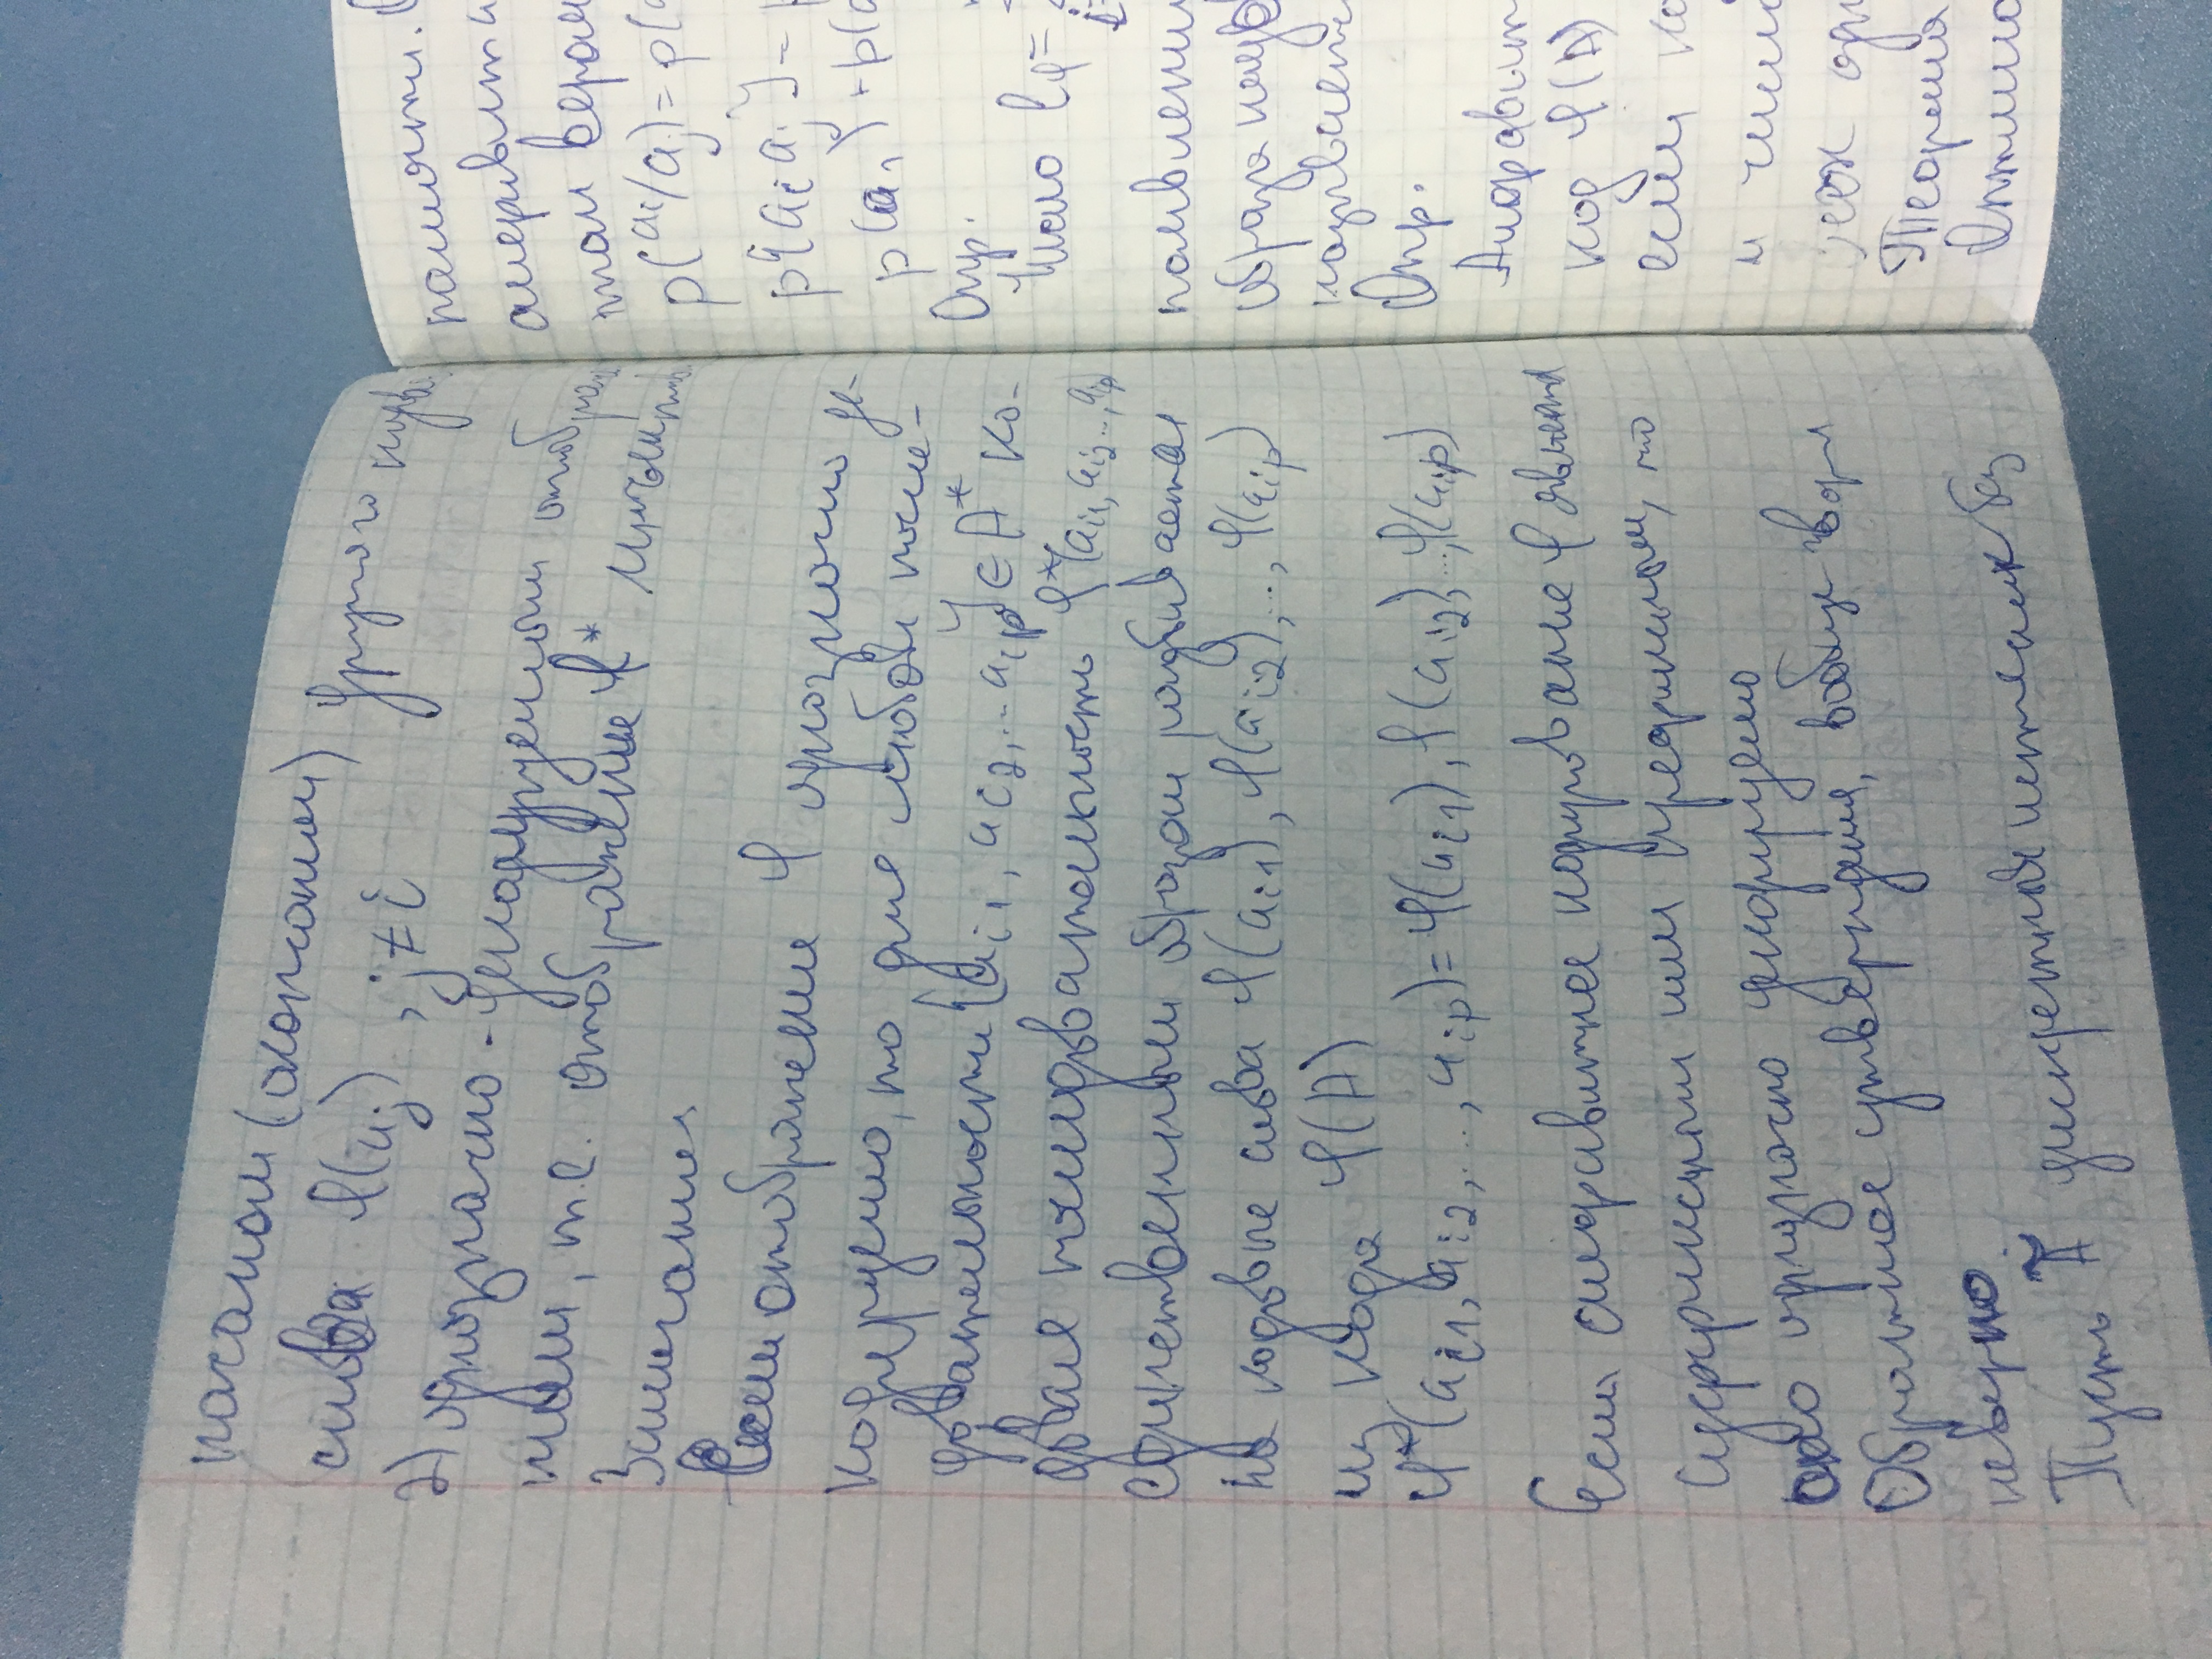 началом (окончанием) другого кодов.
слова φ(aj), j≠i
2) однозначно-декодируемым отображ
нием, т.е. отображение φ* инъектив
Замечание
Если отображение φ однозначно де-
кодируемо, то для любой после-
довательности {ai1, ai2,... aip} ∈ A* ко-
довая последовательность φ*(ai1, ai2..., aip)
единственным образом разбивается
на кодовые слова φ(ai1), φ(ai2),..., φ(aip)
из кода φ(A)
φ*(ai1, ai2,..., aip)= φ(ai1), φ(ai2),..., φ(aip)
Если алфавитное кодирование φ является
суффиксным или префиксным, то
оно однозначно декодируемо
Обратное утверждения, вообще говоря
неверно.
Пусть Ã дискретный источник без
памяти.
алфавита
том вероя
p(ai/aj)= p(a
p{ai aj}=
p(a1)+p(a
Опр.
Число lφ=
появлени
образа кодов
называетс
Опр.
Алфавитн
код φ(A)
если ко
и число
Теорема
Оптима